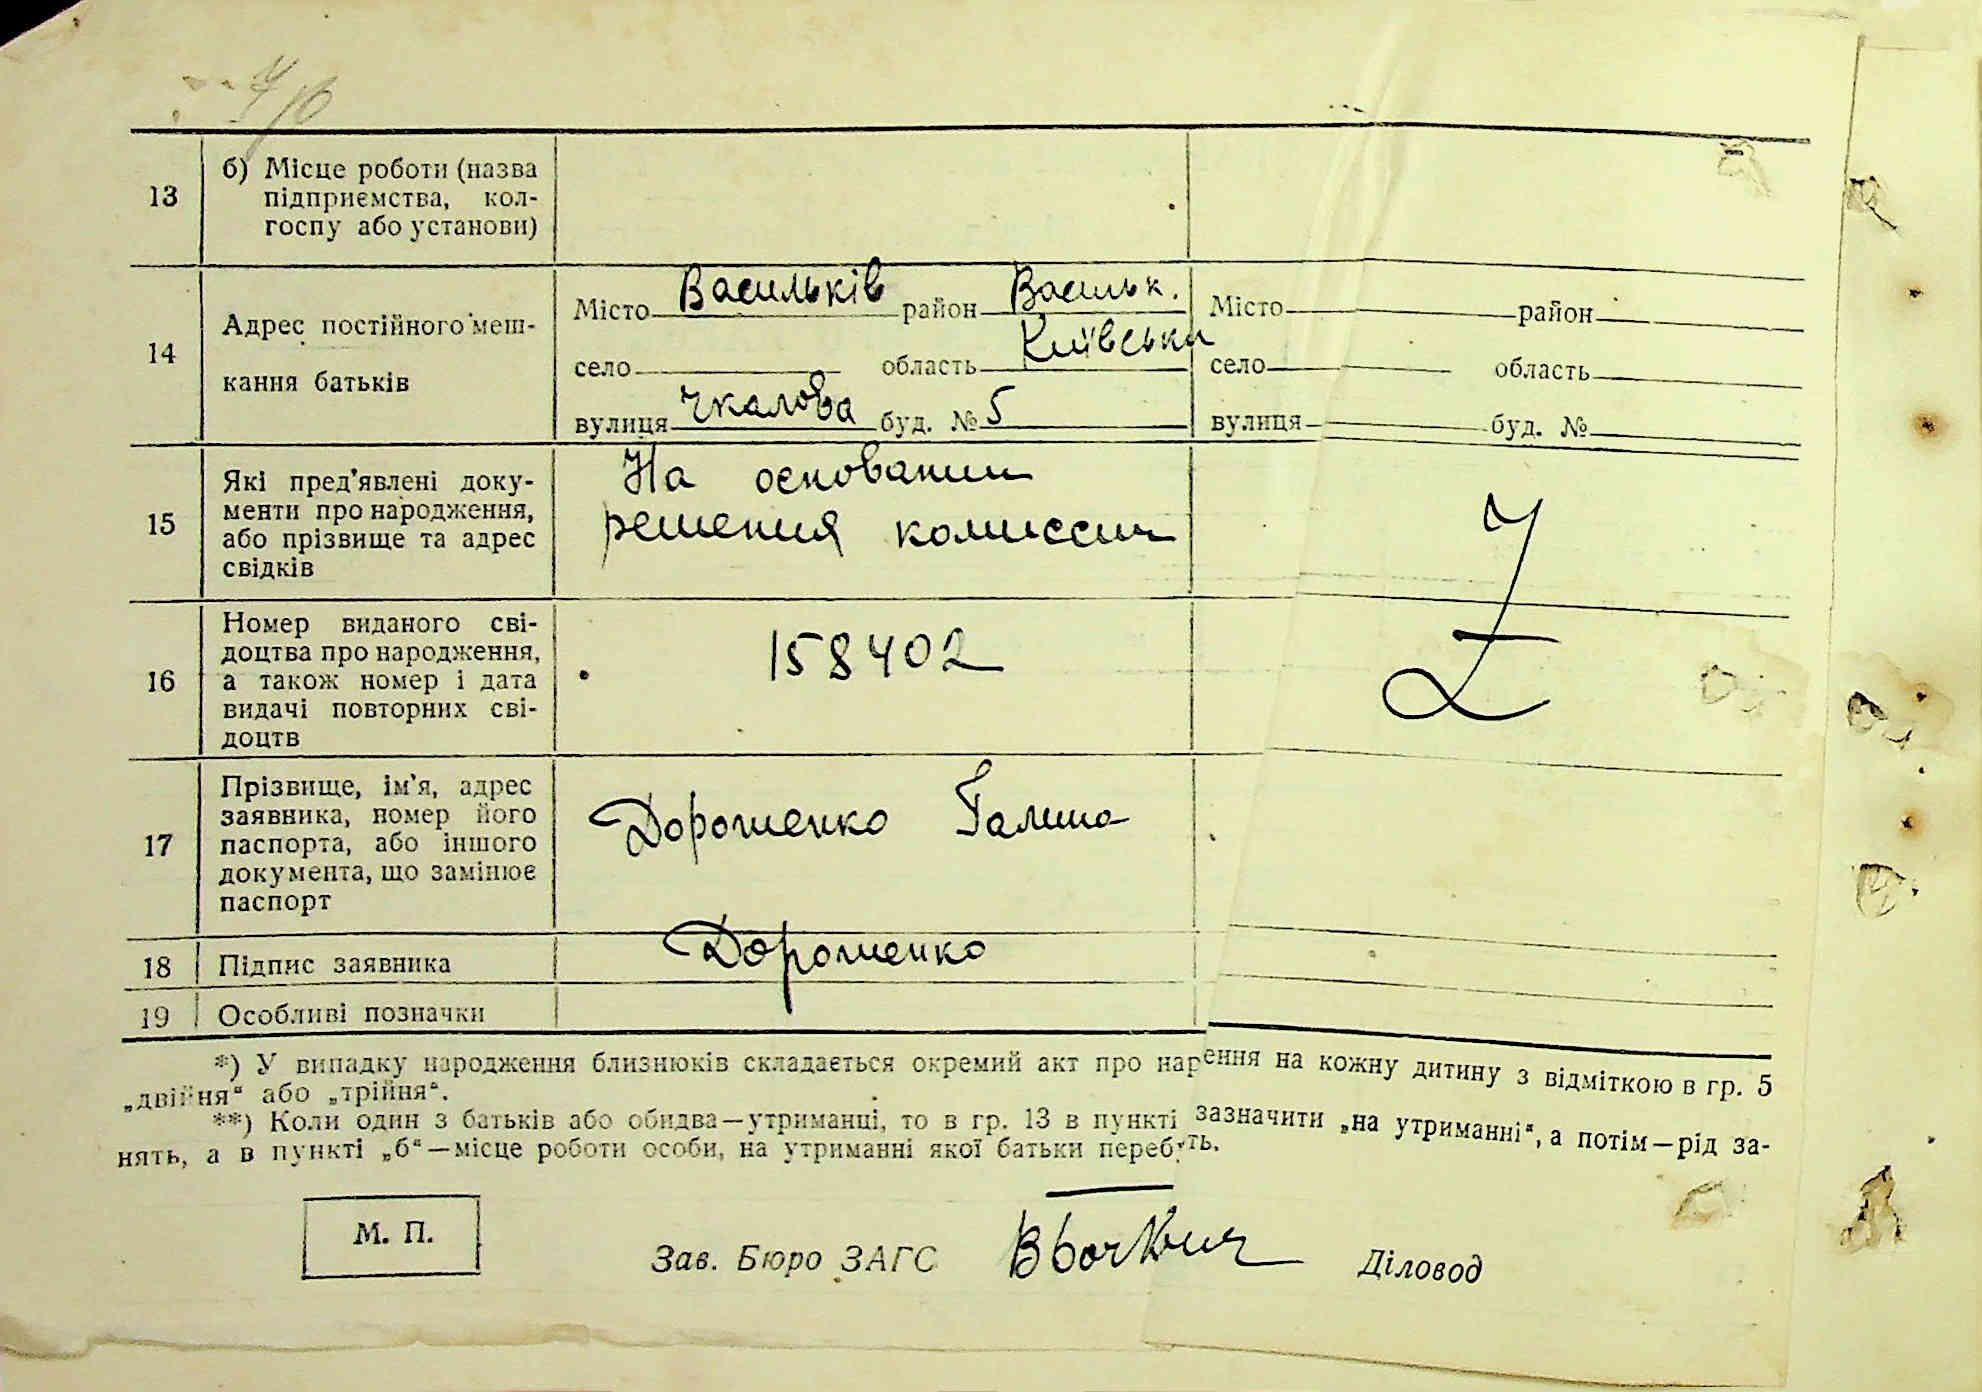 13 б) Місце роботи (назва
підприємства, кол-
госпу або установи)
14 Адрес постійного меш-
кання батьків
Місто Васильків район Васильк.
село область Київська
вулиця Чкалова буд. № 5
Місто район
село область
вулиця буд. №
15 Які пред'явлені доку-
менти про народження,
або прізвище та адрес
свідків
На основании
решения комиссии
16 Номер виданого сві-
доцтва про народження,
а також номер і дата
видачі повторних сві-
доцтв
158402
Z
17 Прізвище, ім'я, адрес
заявника, номер його
паспорта, або іншого
документа, що замінює
паспорт
Дорошенко Галина
18 Підпис заявника Дорошенко
19 Особливі позначки
*) У випадку народження близнюків складається окремий акт про нарення на кожну дитину з відміткою в гр. 5
„двійня“ або „трійня“.
**) Коли один з батьків або обидва—утриманці, то в гр. 13 в пункті зазначити „на утриманні“, а потім—рід за-
нять, а в пункті „б“—місце роботи особи, на утриманні якої батьки перебуть.
М. П.
Зав. Бюро ЗАГС
Діловод